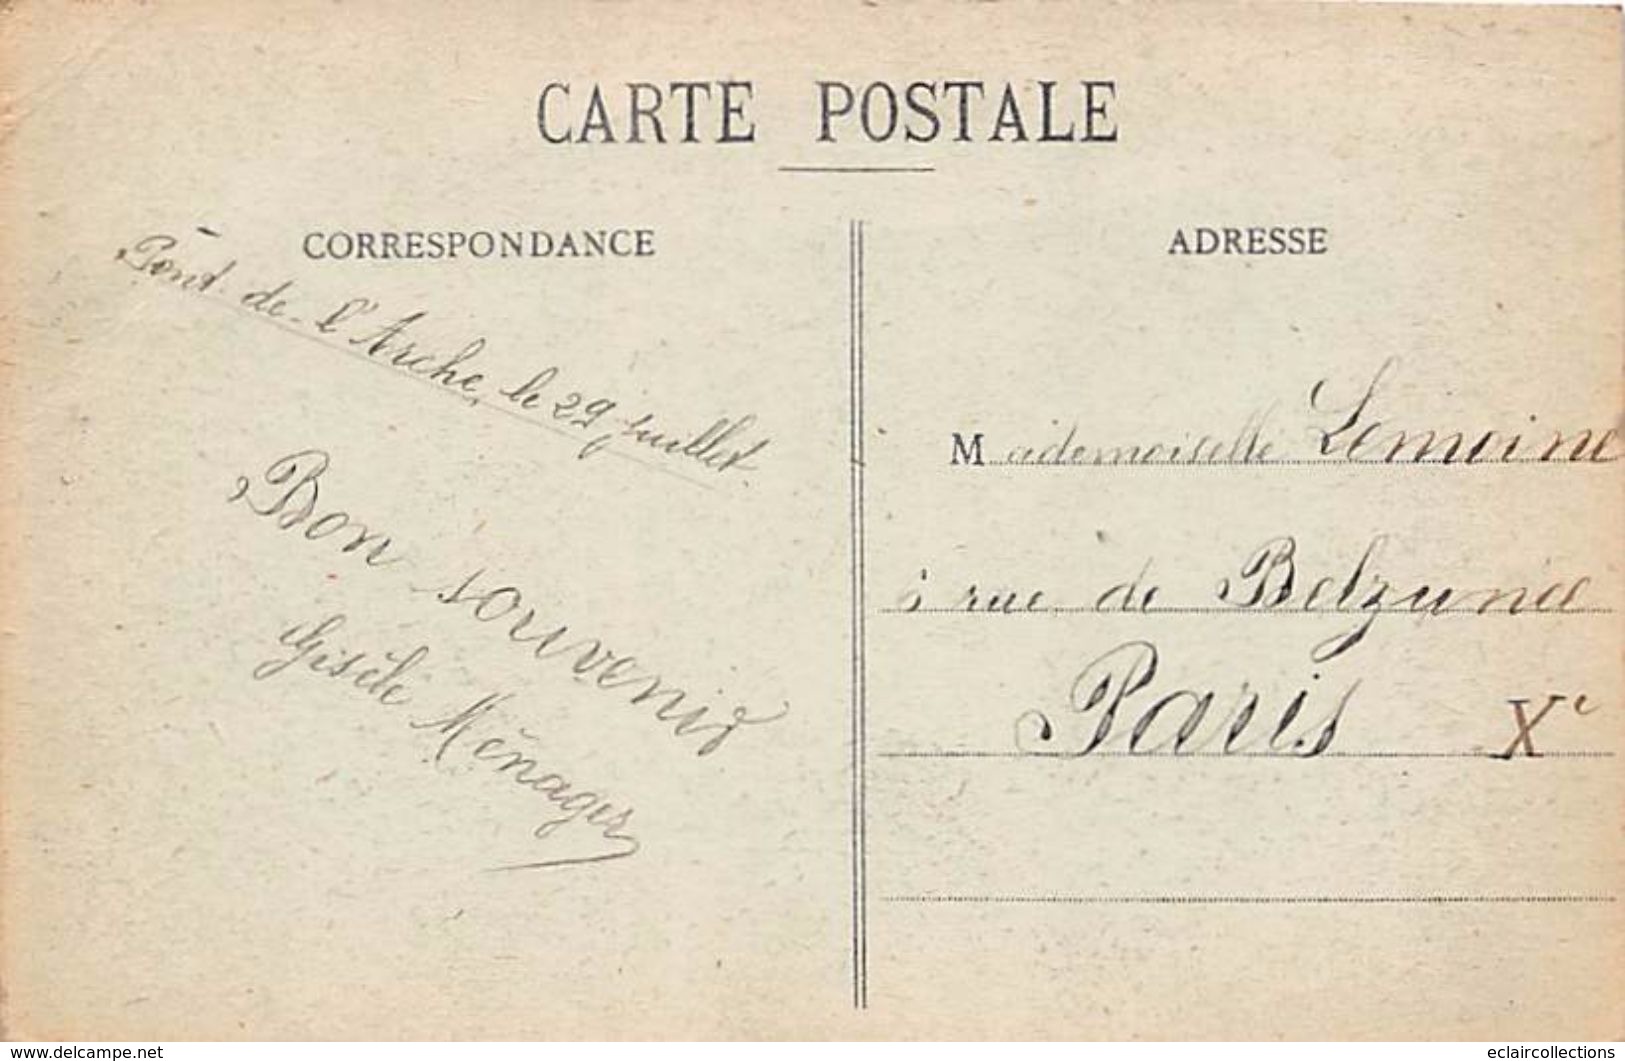 CARTE POSTALE
CORRESPONDANCE
Pont-de-l'Arche, le 29 juillet
Bon souvenir
Gisèle Ménager
ADRESSE
Mademoiselle Lemoine
rue de Belzunce
Paris Xe
www.delcampe.net
eclaircollections